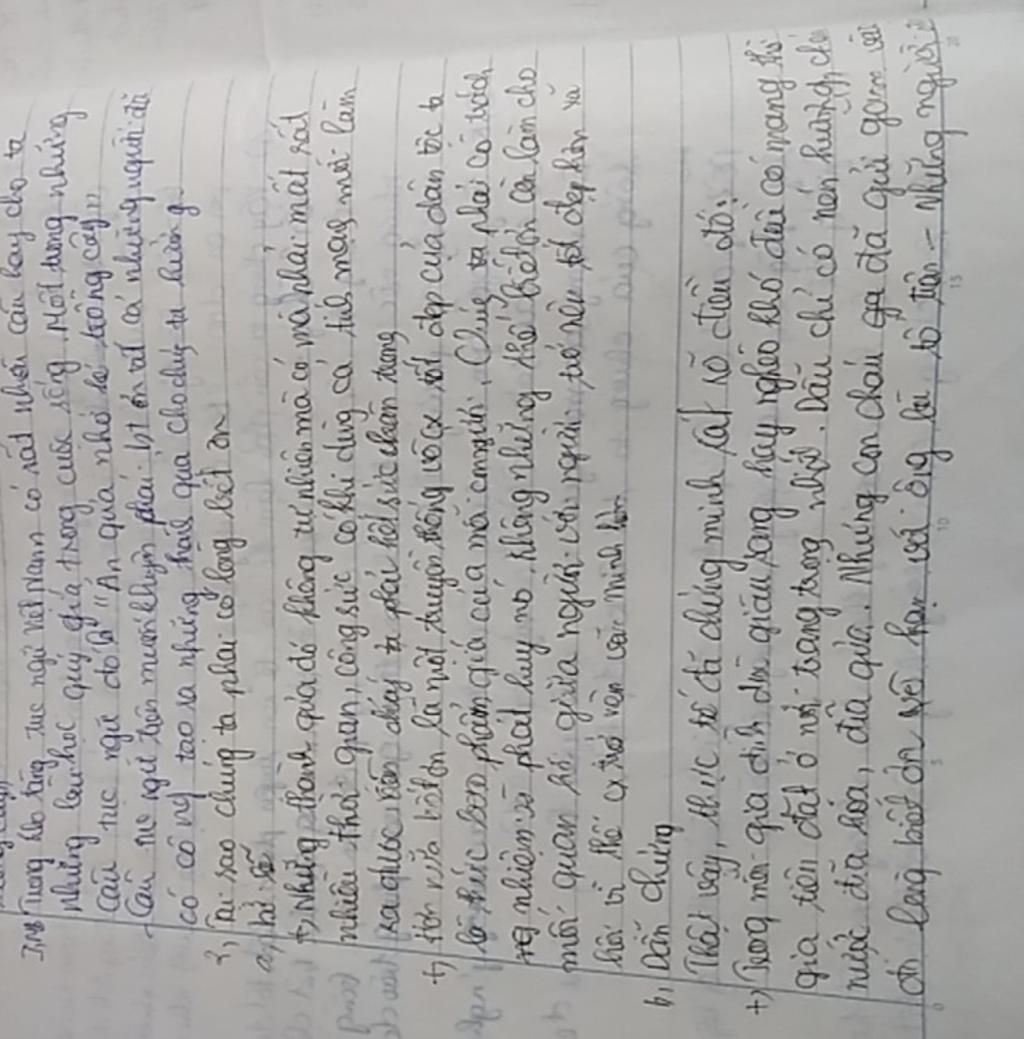 Trong kho tàng tục ngữ việt Nam có rất nhiều câu hay cho ta
những bài học quý giá trong cuộc sống. Một trong những
câu tục ngữ đó là "Ăn quả nhớ kẻ trồng cây"
- Câu tục ngữ trên muốn khuyên phải biết ơn tất cả những người đã
có công tạo ra những thành quả cho chúng ta hưởng
2, Tại sao chúng ta phải có lòng biết ơn
a, lí lẽ
+, Những thành quả đó không tự nhiên mà có mà phải mất rất
nhiều thời gian, công sức có khi dùng cả tính mạng mới làm
ra được vì vậy ta phải hết sức trân trọng
+, Hơn nữa biết ơn là một truyền thống tốt đẹp của dân tộc ta
là thước đo phẩm giá của mỗi con người. Chúng ta phải có trách
nhiệm và phát huy nó, không những thế biết ơn còn làm cho
mối quan hệ giữa người với người trở nên tốt đẹp hơn xã
hội vì thế cx trở nên văn minh hơn
b, Dẫn chứng
Thật vậy, thực tế đã chứng minh rất rõ điều đó:
+, Trong mỗi gia đình dù giàu sang hay nghèo khó đều có mang thờ
gia tiên đặt ở nơi trang trọng nhất. Dẫu chỉ có nén hương, chén
nước, đĩa hoa, đĩa quả. Nhưng con cháu đã gửi gắm vào
đó lòng biết ơn với ông bà tổ tiên - Những người